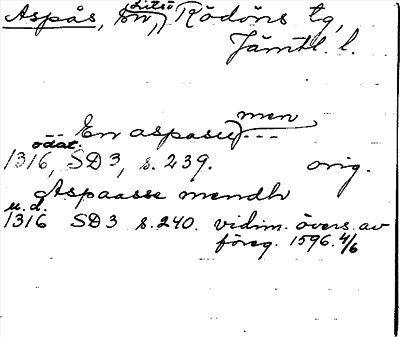 Aspås, sn, Litsö Rödöns tg,
Jämtl. l.
-- En aspasu men ---
odat.
1316, SD3, s. 239. orig.
Aspaasse mendh
u. d.
1316 SD3 s. 240. vidim. övers. av
föreg. 1596. 4/6